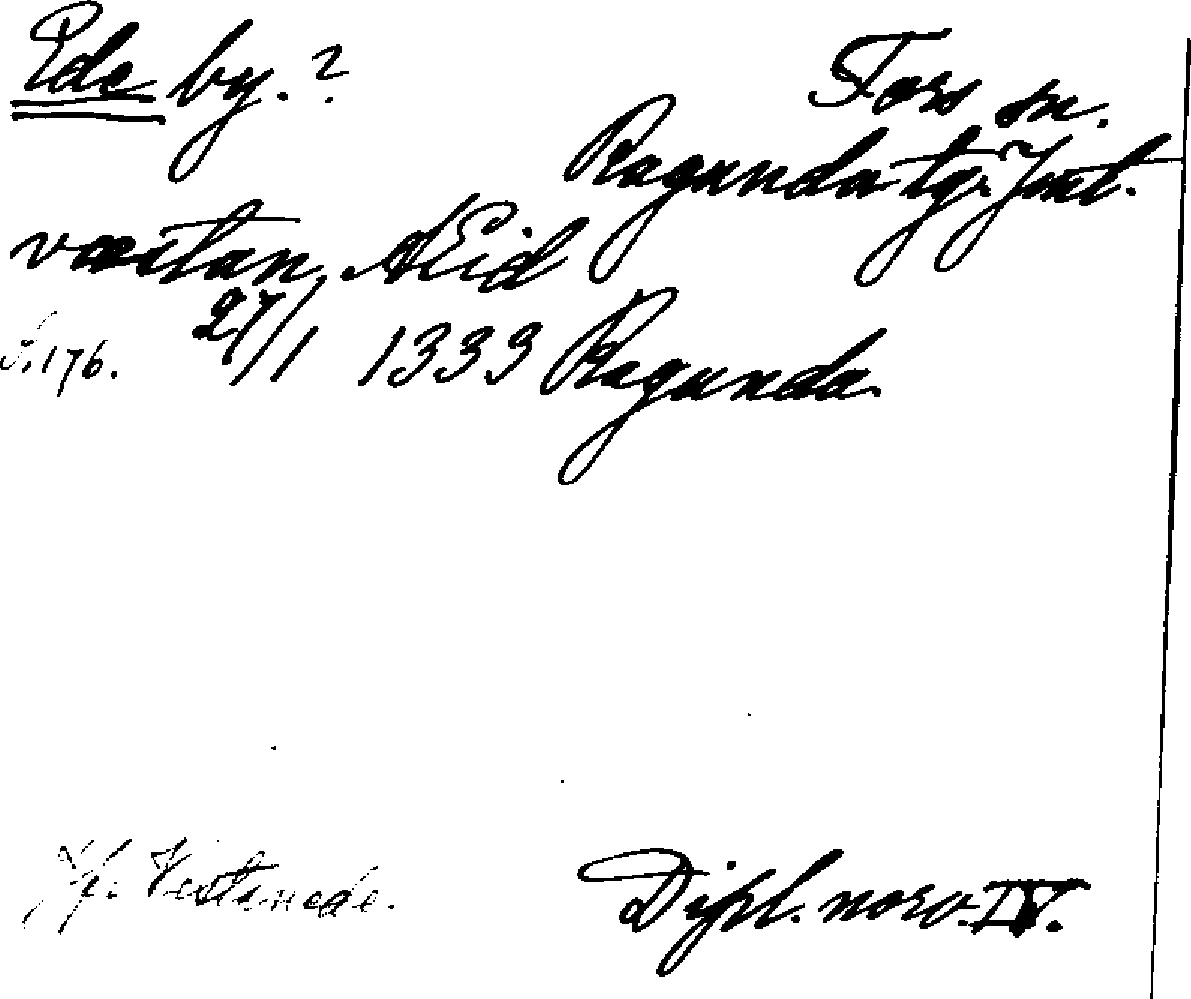 Ede by.?
Fors sn.
Ragunda tg. Jmtl.
væstan, Æid
S. 176. 27/1 1333 Ragunda.
Jfr. Vestanede.
Dipl. norv. IV.